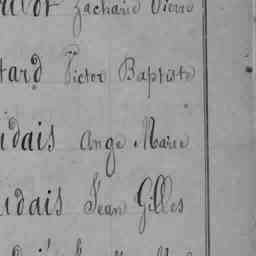 Zacharie Pierre
tard Victor Baptiste
idais Ange Marie
idais Jean Gilles